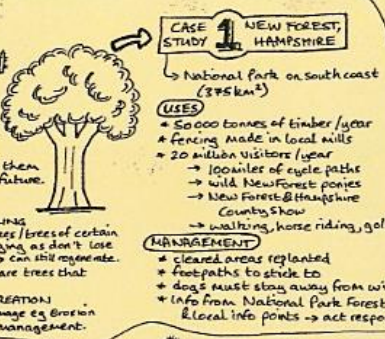 CASE STUDY 1 NEW FOREST, HAMPSHIRE
↳ National Park on south coast
(375km²)
USES
* 50 000 tonnes of timber/year
* fencing made in local mills
* 20 million visitors/year
→ 100 miles of cycle paths
→ wild New Forest ponies
→ New Forest & Hampshire
County Show
→ walking, horse riding, gol
MANAGEMENT
* cleared areas replanted
* footpaths to stick to
* dogs must stay away from wi
* Info from National Park Forest
& local info points → act respo
them
future.
NG
ees/trees of certain
ging as don't lose
can still regenerate.
are trees that
REATION
nage eg Erosion
management.